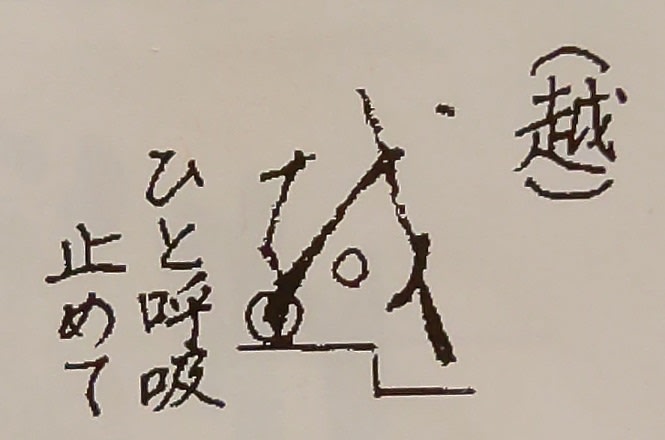 (越)
ひと呼吸
止めて